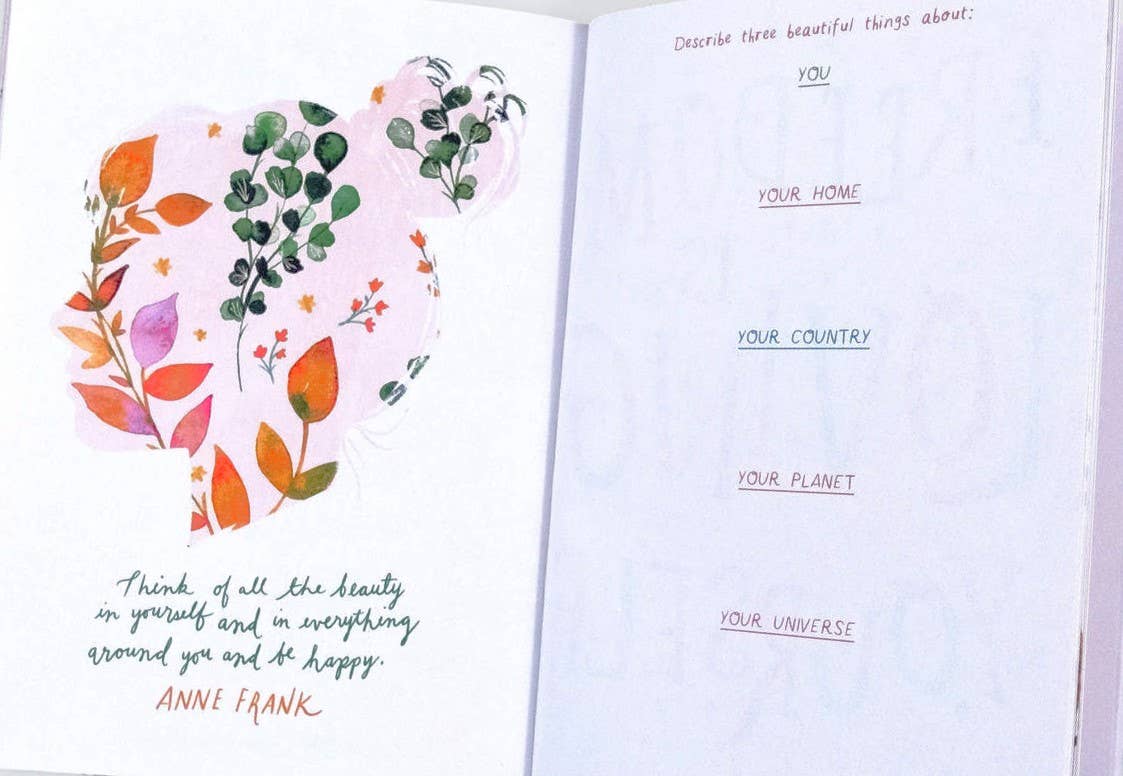 Think of all the beauty
in yourself and in everything
around you and be happy.
ANNE FRANK
Describe three beautiful things about:
YOU
YOUR HOME
YOUR COUNTRY
YOUR PLANET
YOUR UNIVERSE